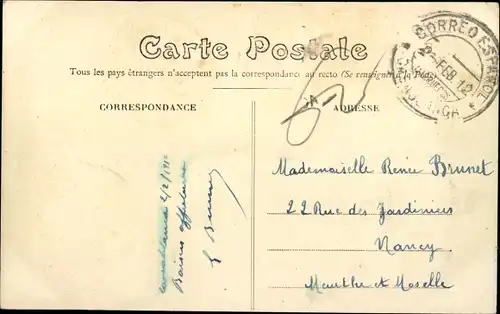 Carte Postale
Tous les pays étrangers n'acceptent pas la correspondance au recto (Se renseigner à la Poste)
CORRESPONDANCE
ADRESSE
CORREO ESPAÑOL
2 FEB 12
Casablanca 2/2/1912
Baisers affectueux
Mademoiselle Renée Brunet
22 Rue des Jardiniers
Nancy
Meurthe et Moselle